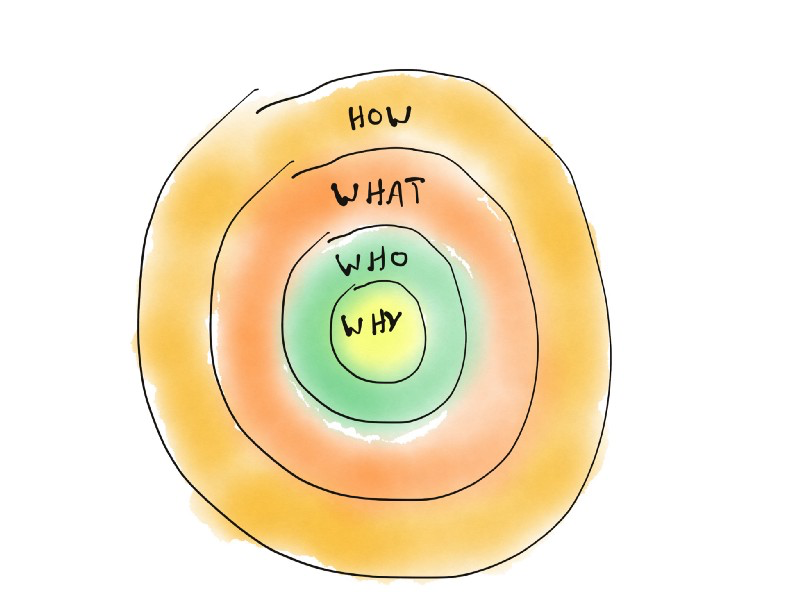 HOW
WHAT
WHO
WHY